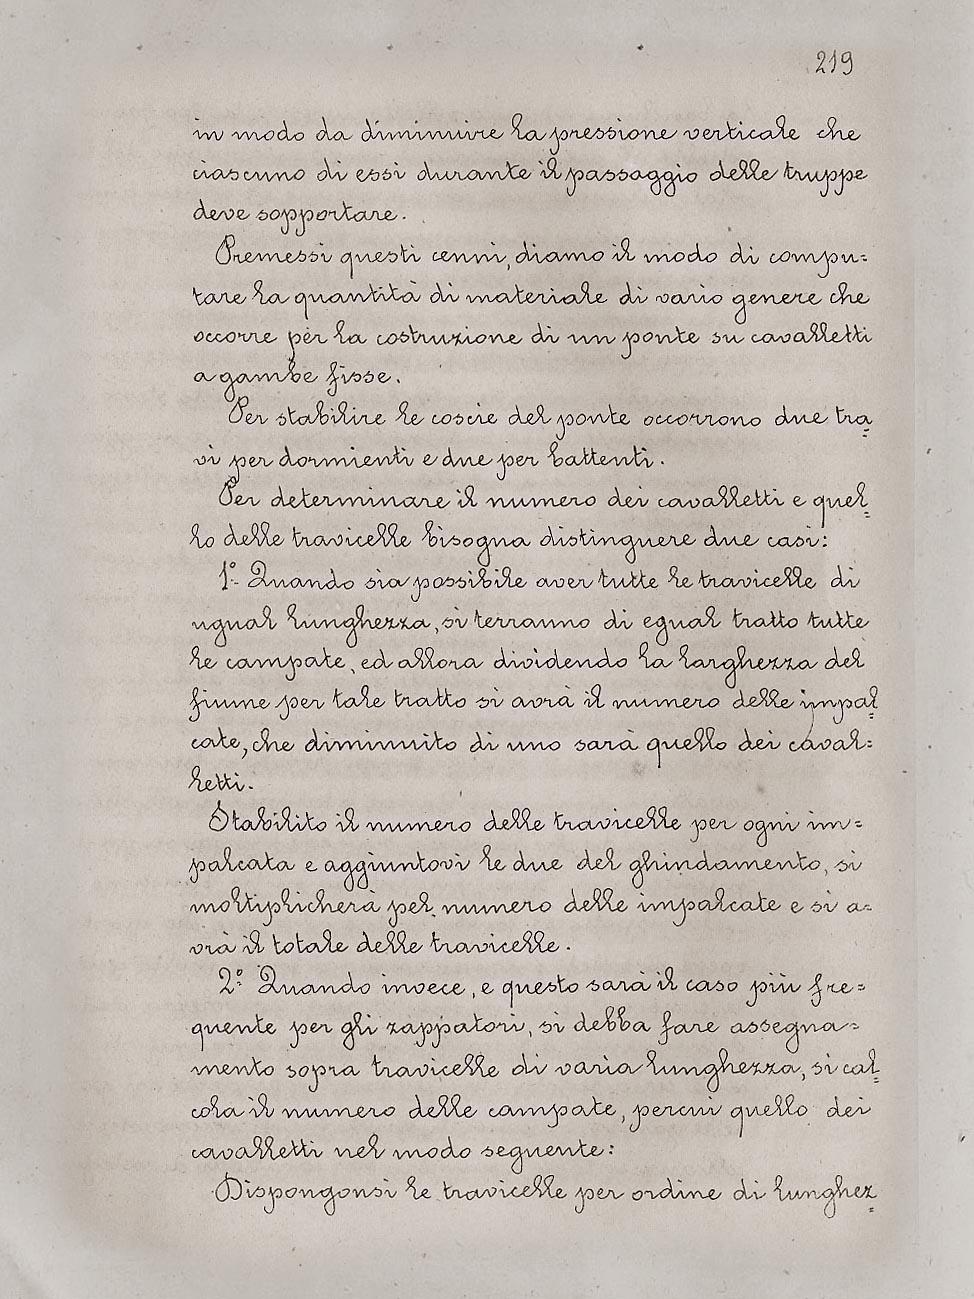 219
in modo da diminuire la pressione verticale che
ciascuno di essi durante il passaggio delle truppe
deve sopportare.
Premessi questi cenni, diamo il modo di compu=
tare la quantità di materiale di vario genere che
occorre per la costruzione di un ponte su cavalletti
a gambe fisse.
Per stabilire le coscie del ponte occorrono due tra=
vi per dormienti e due per battenti.
Per determinare il numero dei cavalletti e quel=
lo delle travicelle bisogna distinguere due casi:
1º Quando sia possibile aver tutte le travicelle di
ugual lunghezza, si terranno di egual tratto tutte
le campate, ed allora dividendo la larghezza del
fiume per tale tratto si avrà il numero delle impal=
cate, che diminuito di uno sarà quello dei caval=
letti.
Stabilito il numero delle travicelle per ogni im=
palcata e aggiuntovi le due del ghindamento, si
moltiplicherà pel numero delle impalcate e si a=
vrà il totale delle travicelle.
2º Quando invece, e questo sarà il caso più fre=
quente per gli zappatori, si debba fare assegna=
mento sopra travicelle di varia lunghezza, si cal=
cola il numero delle campate, percui quello dei
cavalletti nel modo seguente:
Dispongonsi le travicelle per ordine di lunghez=